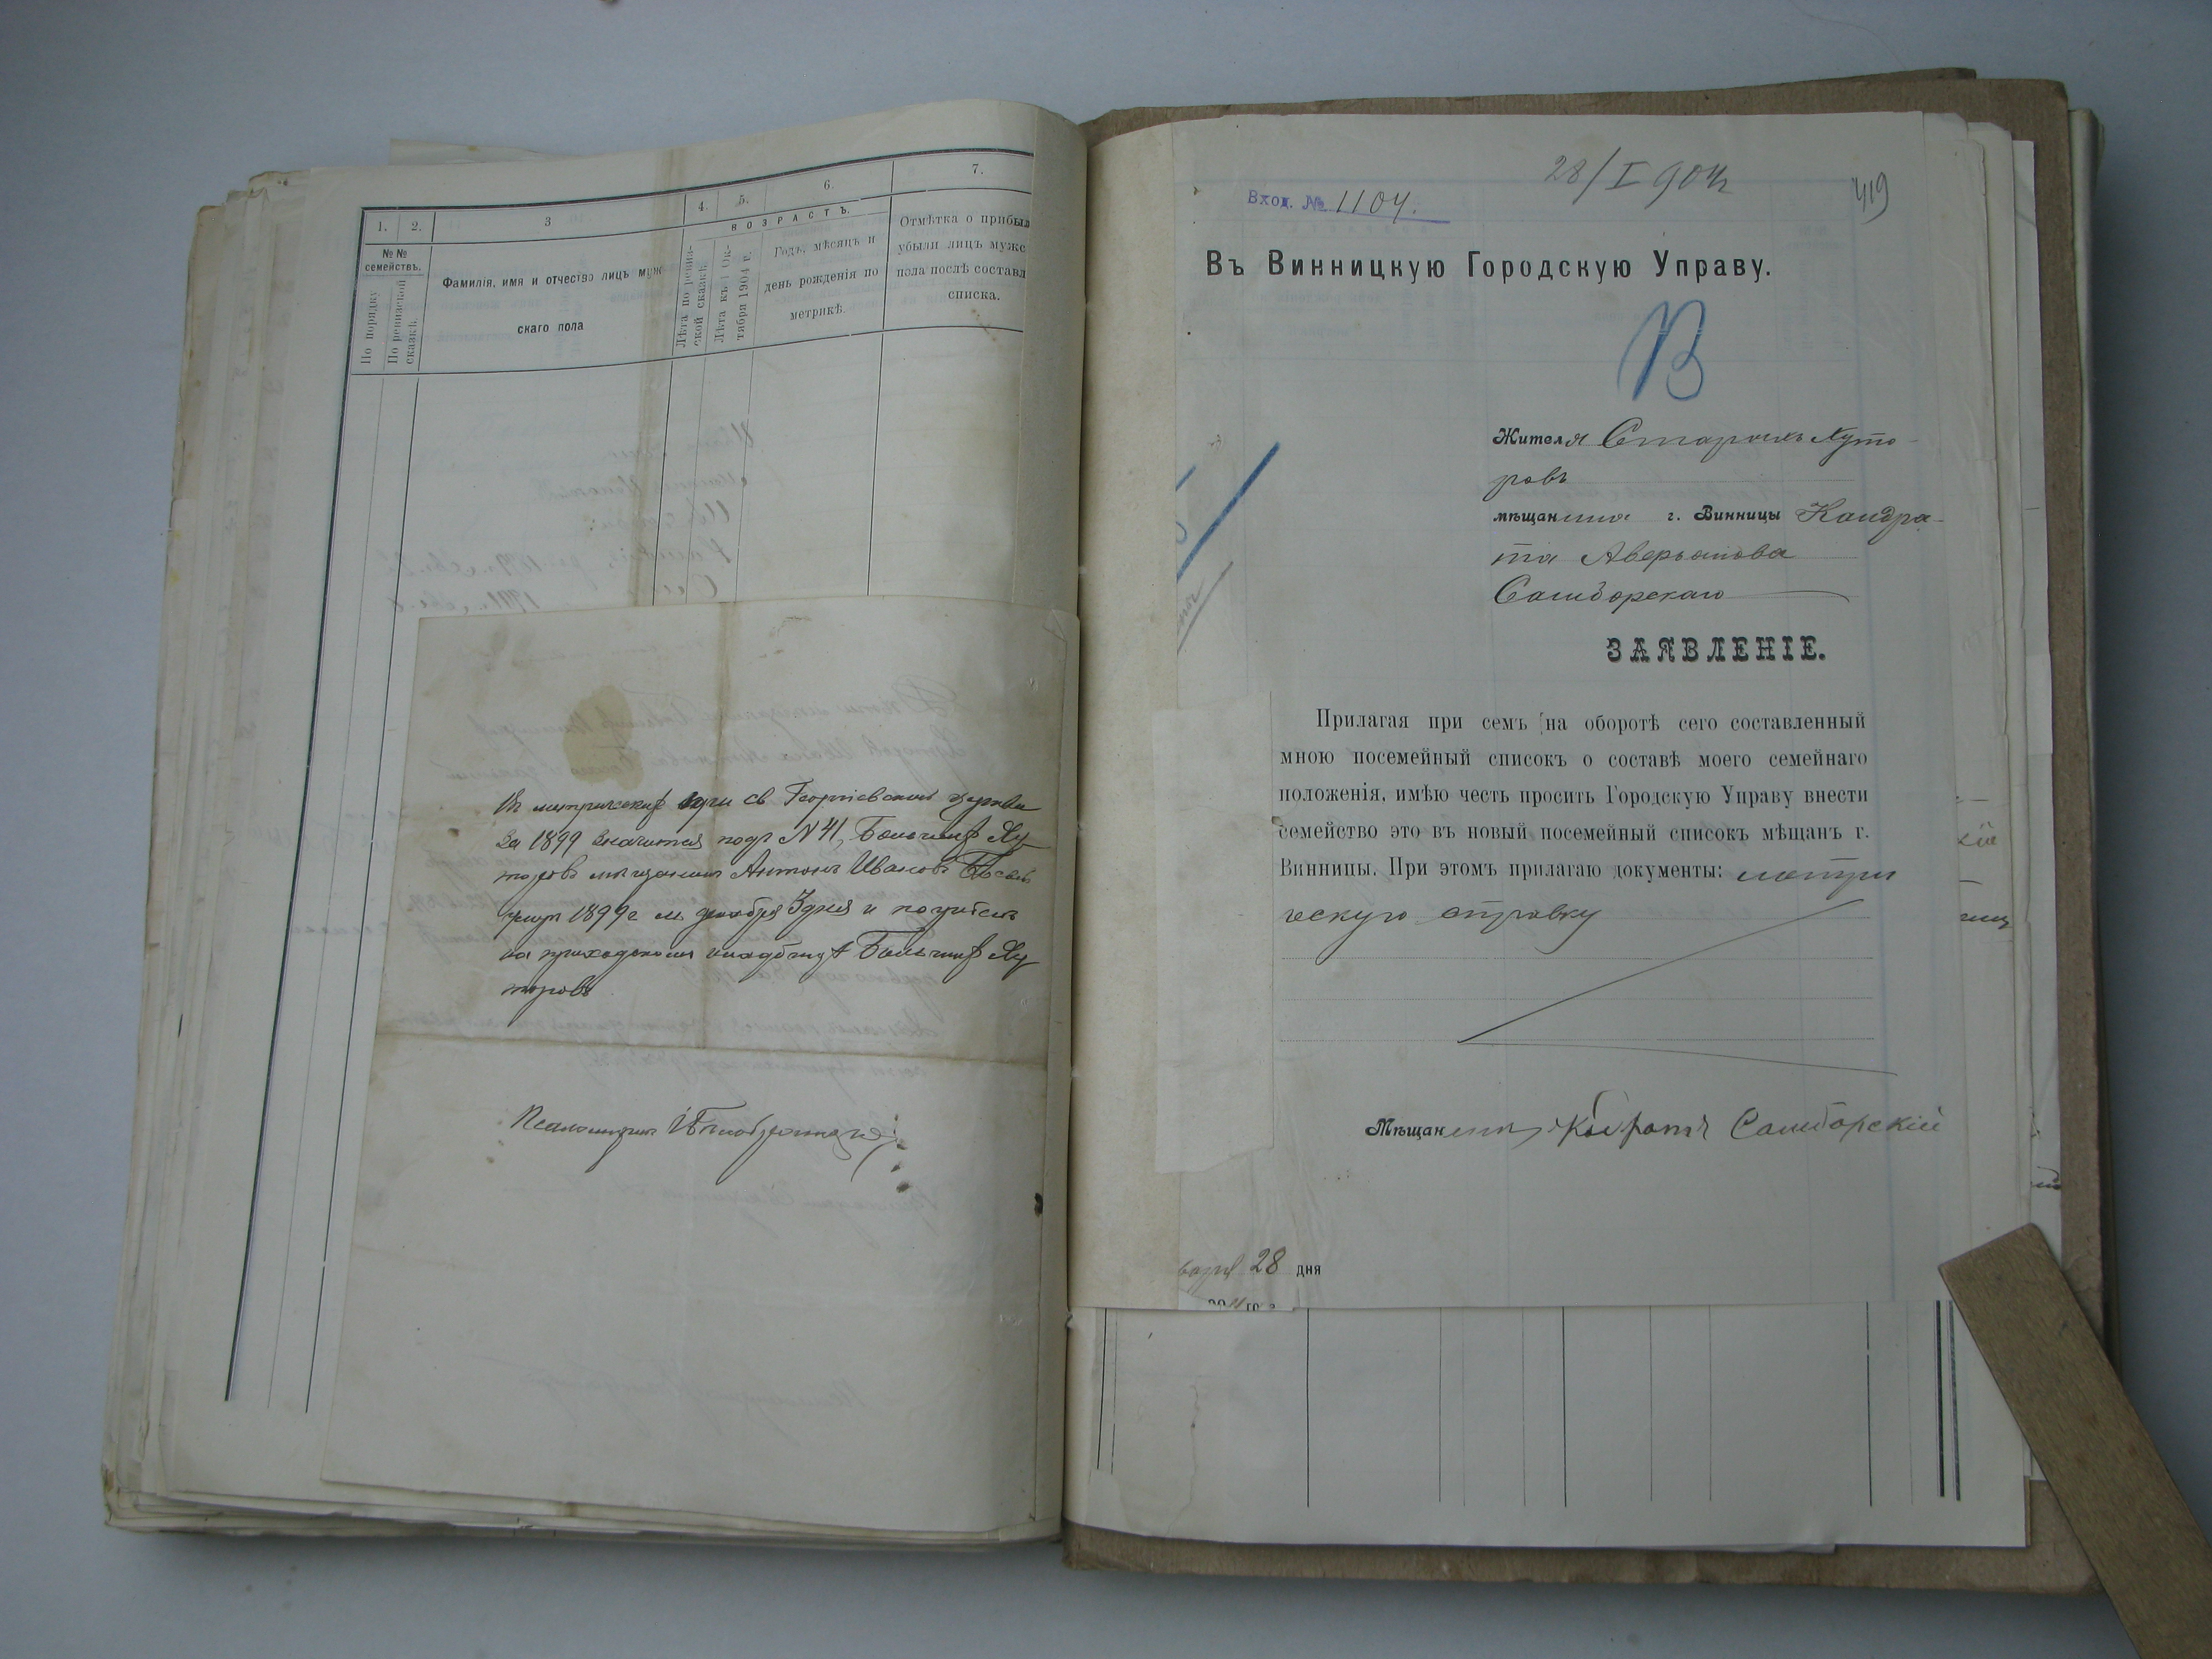 1. 2. 3 4. 5. 6. 7.
№№ семействъ.
По порядку
По ревизской сказкѣ.
Фамилія, имя и отчество лицъ муж
скаго пола
ВОЗРАСТЪ.
Лѣта по ревиз-
ской сказкѣ.
Лѣта къ 1 Ок-
тября 1904 г.
Годъ, мѣсяцъ и
день рожденія по
метрикѣ.
Отмѣтка о прибыл
убыли лицъ мужс
пола послѣ составл
списка.
Въ метрической св Георгіевской церкви
За 1899 значится подъ N 41, Большихъ Ху
торовъ мѣщанинъ Антонъ Ивановъ
умеръ 1899 г м декабря 3 дня и погребенъ
на приходскомъ кладбищѣ Большихъ Ху
торовъ
Псаломщикъ
28/I 904
419
Вход. № 1104.
Въ Винницкую Городскую Управу.
В
Жителя Старыхъ Хуто-
ровъ
мѣщанина г. Винницы Кондра-
та Аверьянова
Самборскаго
ЗАЯВЛЕНІЕ.
Прилагая при семъ на оборотѣ сего составленный
мною посемейный списокъ о составѣ моего семейнаго
положенія, имѣю честь просить Городскую Управу внести
семейство это въ новый посемейный списокъ мѣщанъ г.
Винницы. При этомъ прилагаю документы: метри
ческую справку
Мѣщанинъ Самборскій
варя 28 дня